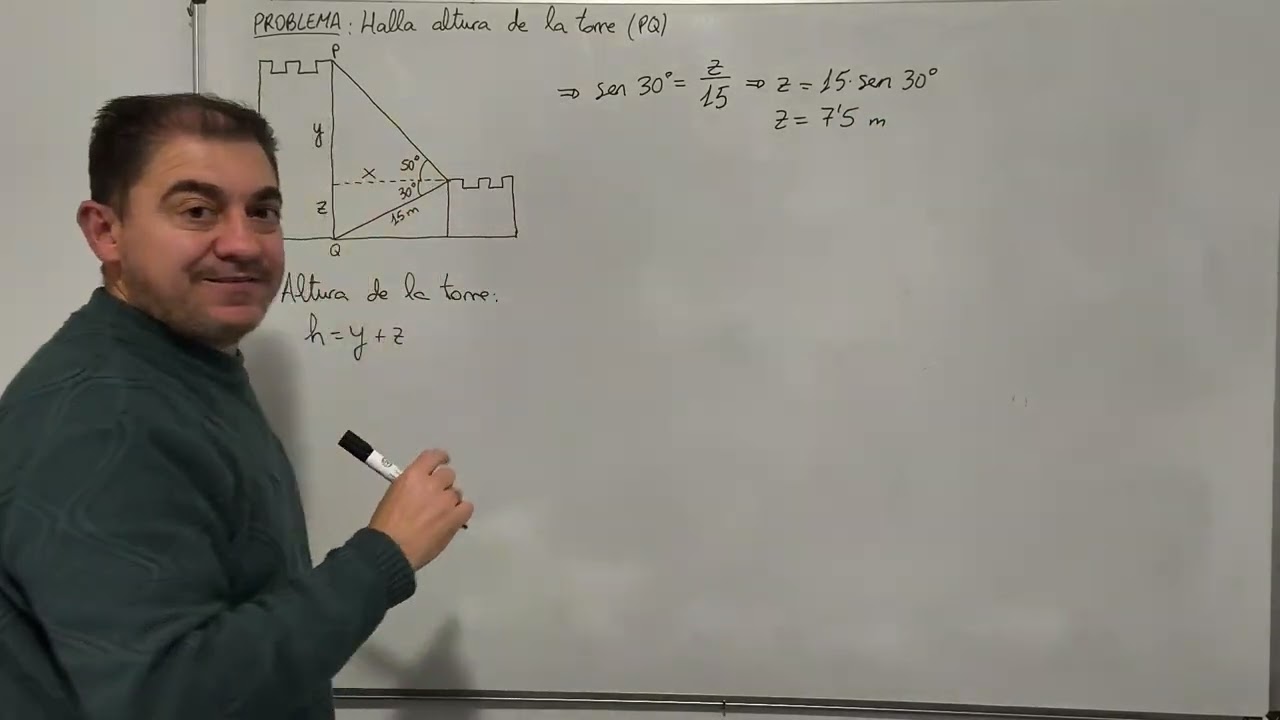 PROBLEMA: Halla altura de la torre (PQ)
P
⇒ sen 30° = z/15 ⇒ z = 15·sen 30°
z = 7'5 m
y
50°
x
30°
z
15 m
Q
Altura de la torre:
h = y + z